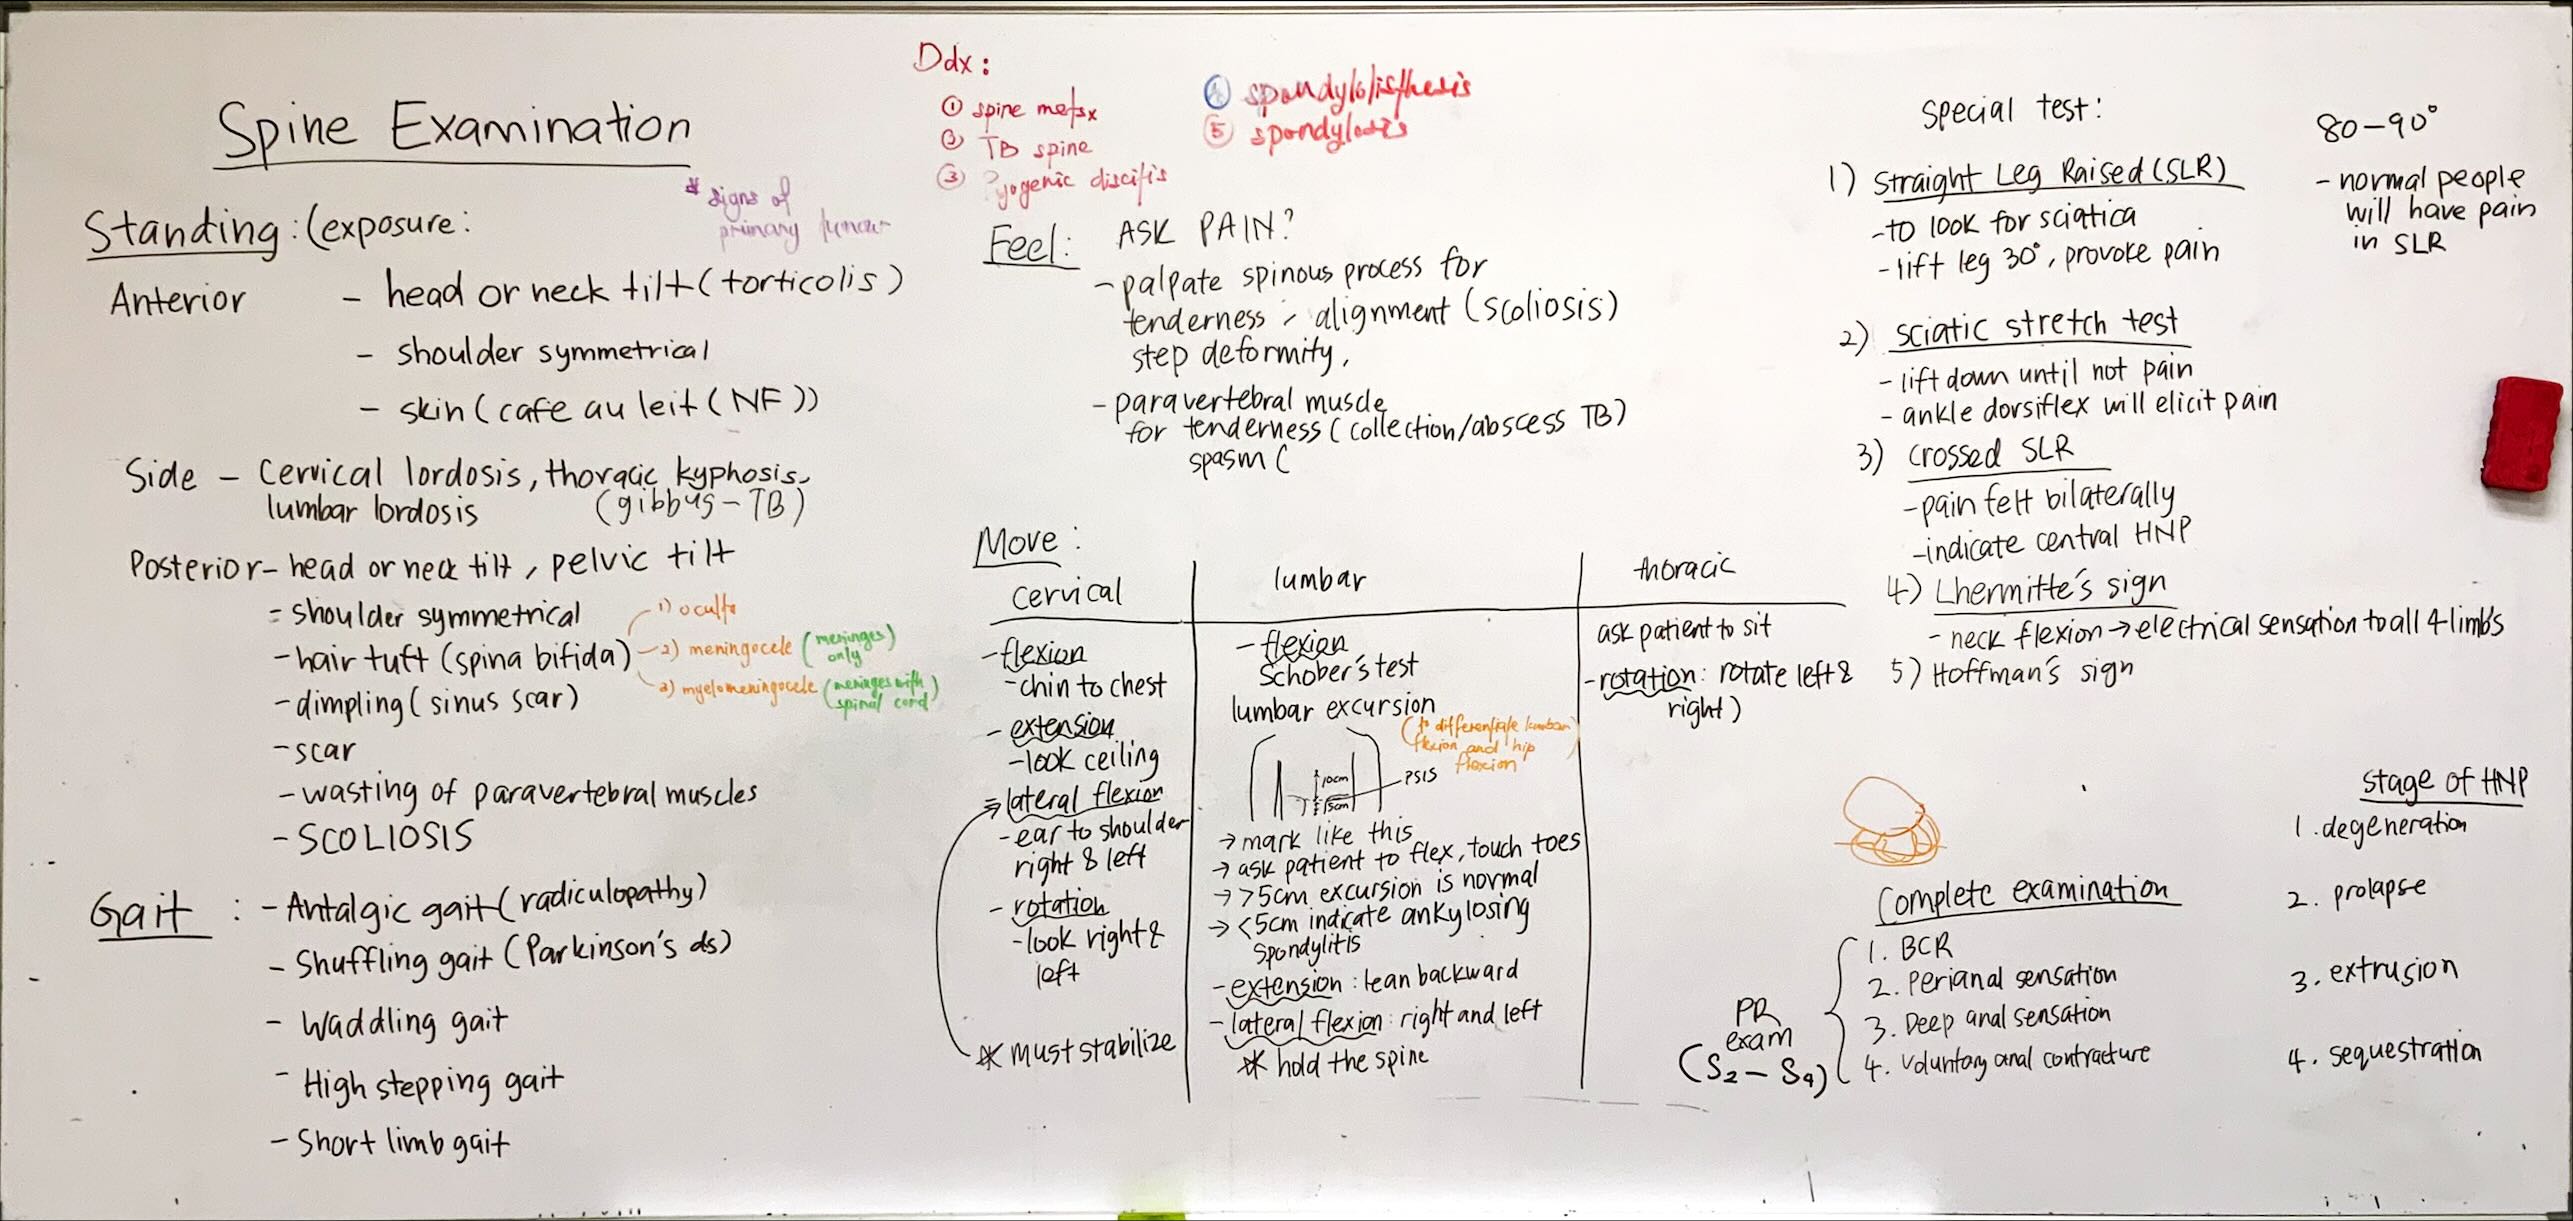 Spine Examination
* signs of
primary tumour
Standing : (exposure:
Anterior - head or neck tilt (torticolis)
- shoulder symmetrical
- skin (cafe au leit (NF))
Side - Cervical lordosis, thoracic kyphosis,
lumbar lordosis (gibbus - TB)
Posterior - head or neck tilt, pelvic tilt
= shoulder symmetrical
- hair tuft (spina bifida)
1) oculta
2) meningocele (meninges only)
3) myelomeningocele (meninges with spinal cord)
- dimpling (sinus scar)
- scar
- wasting of paravertebral muscles
- SCOLIOSIS
Gait : - Antalgic gait (radiculopathy)
- Shuffling gait (Parkinson's ds)
- Waddling gait
- High stepping gait
- Short limb gait
Ddx:
① spine metsx
② TB spine
③ pyogenic discitis
④ spondylolisthesis
⑤ spondylosis
Feel: ASK PAIN?
- palpate spinous process for
tenderness, alignment (scoliosis)
step deformity,
- paravertebral muscle
for tenderness (collection/abscess TB)
spasm (
Move:
cervical
- flexion
- chin to chest
- extension
- look ceiling
= lateral flexion
- ear to shoulder
right & left
- rotation
- look right &
left
* must stabilize
lumbar
- flexion
Schober's test
lumbar excursion
(to differentiate lumbar
flexion and hip
flexion
10cm
5cm
PSIS
→ mark like this
→ ask patient to flex, touch toes
→ >5cm excursion is normal
→ <5cm indicate ankylosing
spondylitis
- extension : lean backward
- lateral flexion : right and left
* hold the spine
thoracic
ask patient to sit
- rotation : rotate left &
right)
Special test:
1) Straight Leg Raised (SLR)
- to look for sciatica
- lift leg 30°, provoke pain
80-90°
- normal people
will have pain
in SLR
2) sciatic stretch test
- lift down until not pain
- ankle dorsiflex will elicit pain
3) crossed SLR
- pain felt bilaterally
- indicate central HNP
4) Lhermitte's sign
- neck flexion → electrical sensation to all 4 limbs
5) Hoffman's sign
Complete examination
1. BCR
2. Perianal sensation
3. Deep anal sensation
4. Voluntary anal contracture
PR
exam
(S2 - S4)
Stage of HNP
1. degeneration
2. prolapse
3. extrusion
4. sequestration